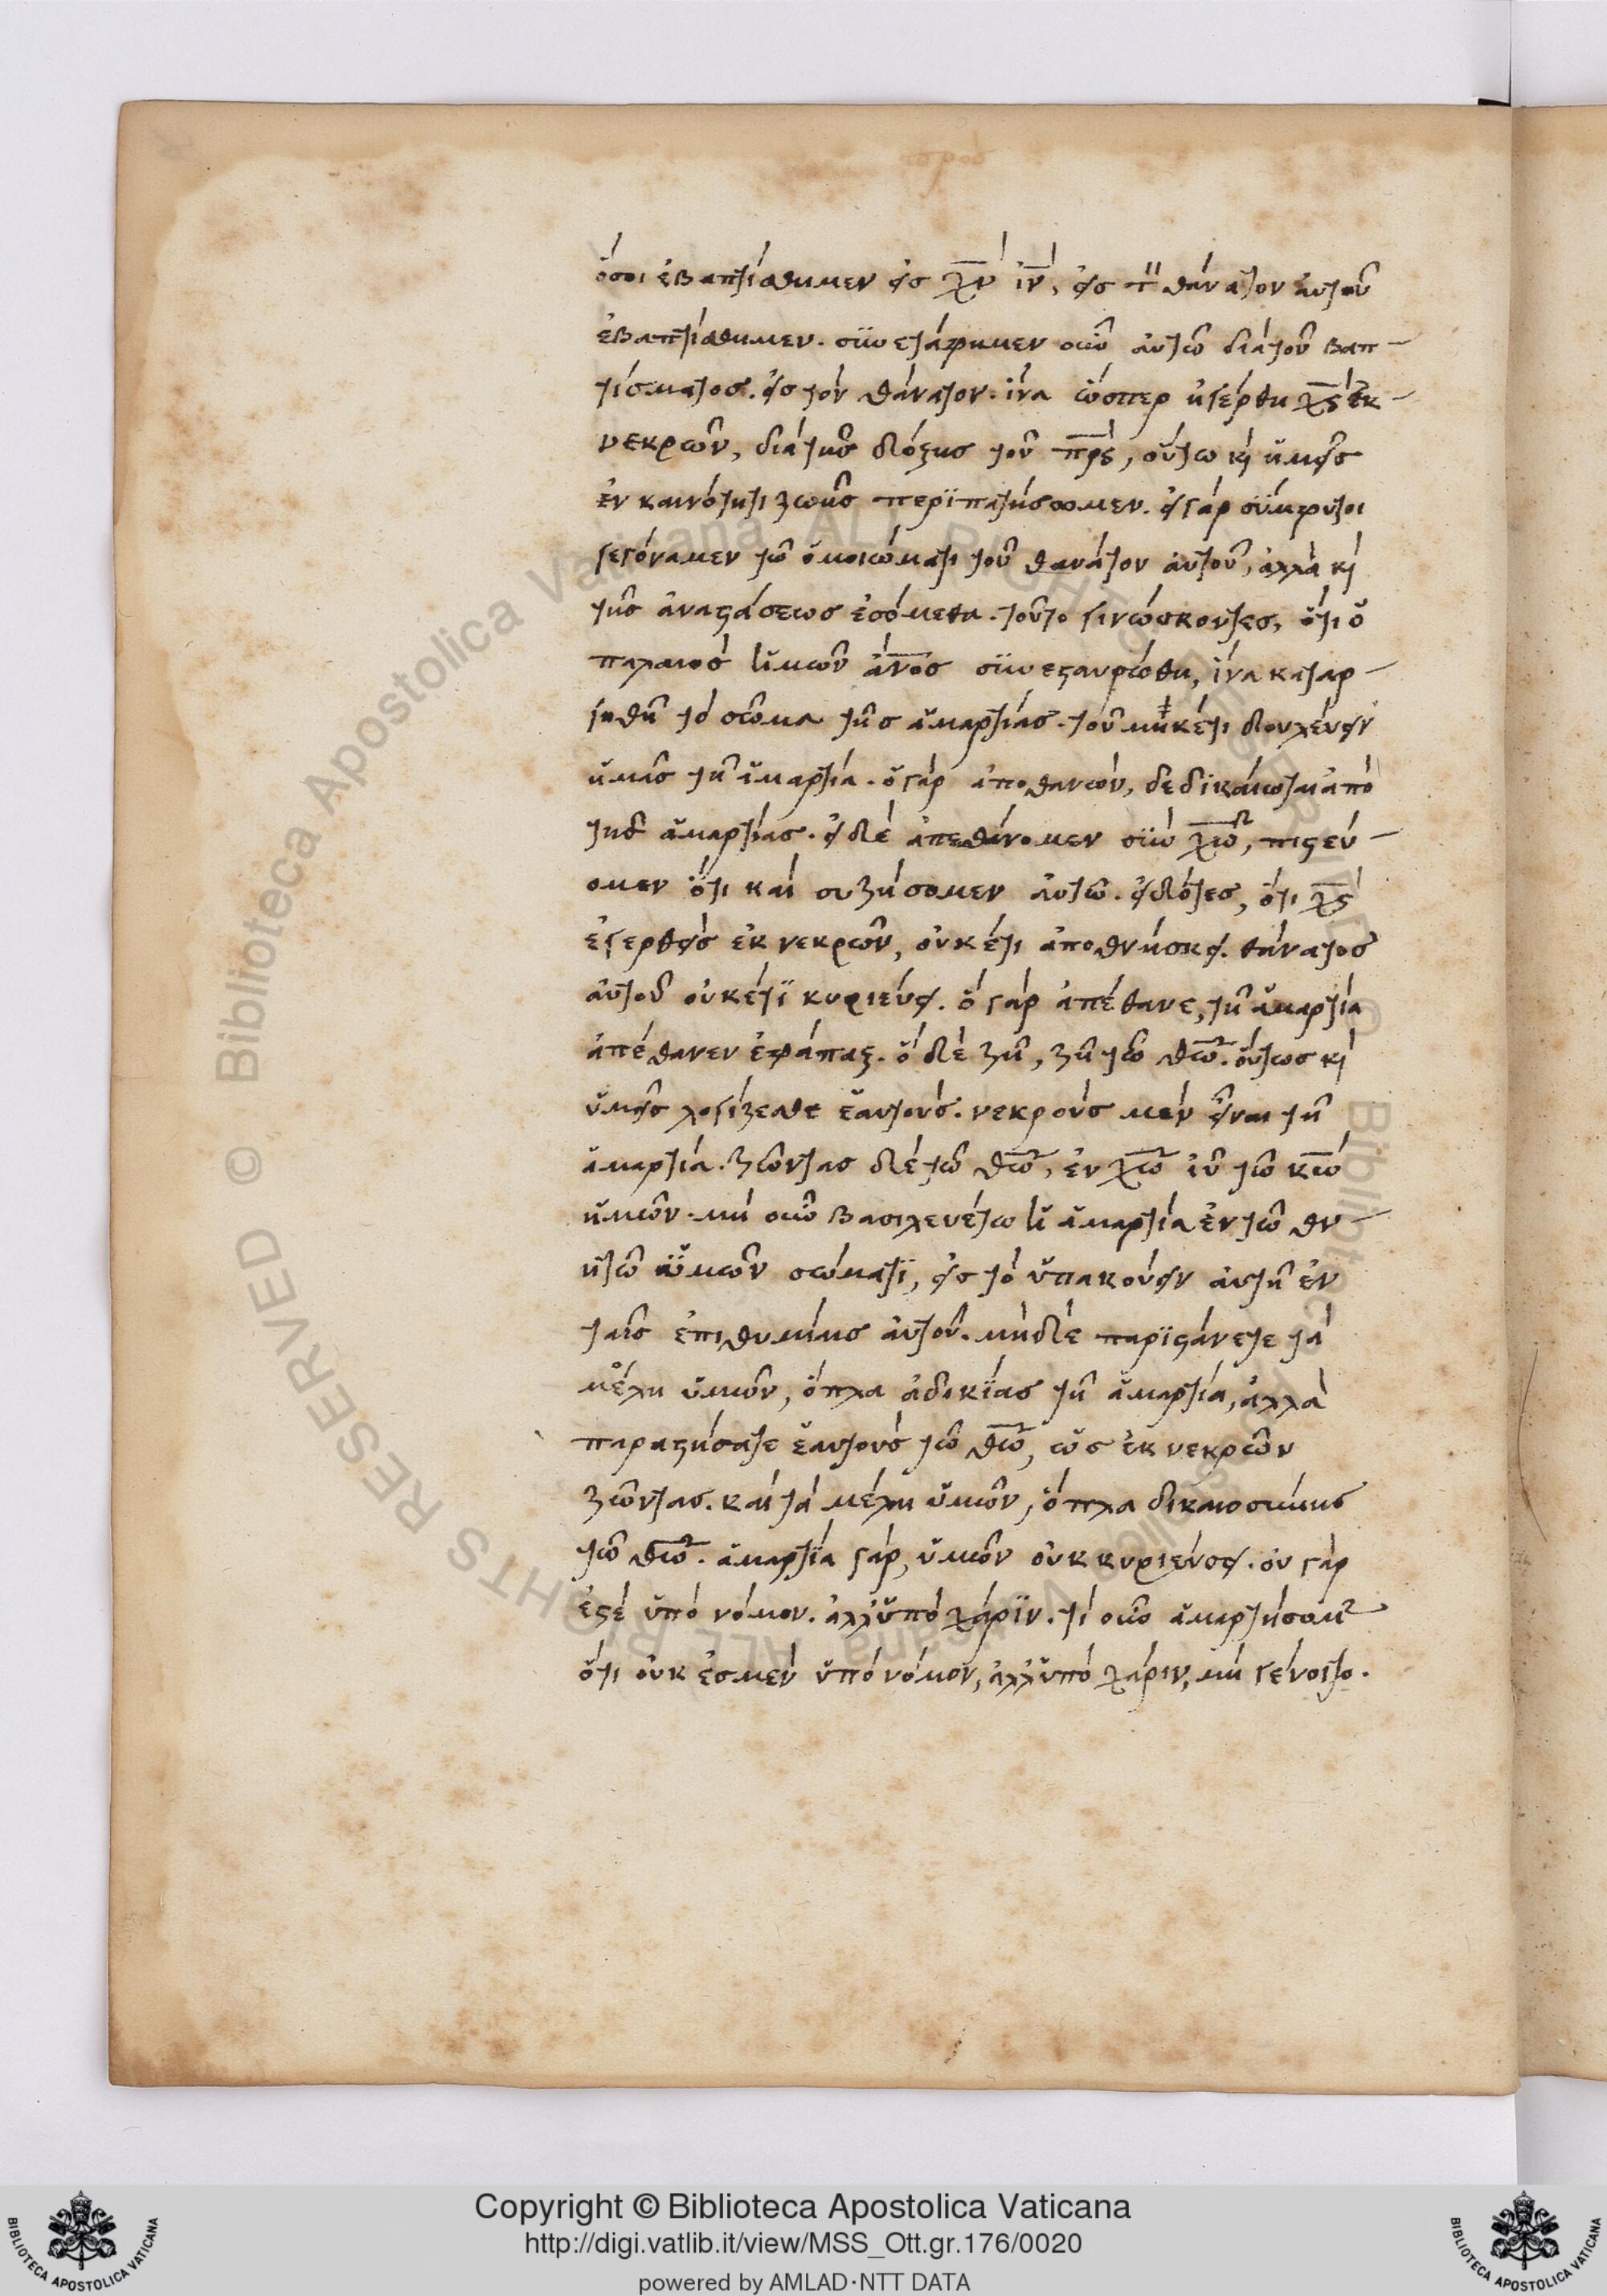 ὅσοι ἐβαπτίσθημεν εἰς χν ιν, εἰς τὸν θάνατον αὐτοῦ
ἐβαπτίσθημεν. συνετάφημεν οὖν αὐτῶ διὰ τοῦ βαπ-
τίσματος. εἰς τὸν θάνατον. ἵνα ὥσπερ ἠγέρθη χς ἐκ-
νεκρῶν, διὰ τῆς δόξης τοῦ πρς, οὕτω κὶ ἡμεῖς
ἐν καινότητι ζωῆς περϊπατήσωμεν. εἰ γὰρ σύμφυτοι
γεγόναμεν τῶ ὁμοιώματι τοῦ θανάτου αὐτοῦ, ἀλλὰ κὶ
τῆς ἀναστάσεως ἐσόμεθα. τοῦτο γινώσκοντες, ὅτι ὁ
παλαιὸς ἡμῶν ἄνος συνεσταυρώθη, ἵνα καταρ-
γηθῆ τὸ σῶμα τῆς ἁμαρτίας. τοῦ μηκέτι δουλεύειν
ἡμᾶς τῆ ἁμαρτία. ὁ γὰρ ἀποθανὼν, δεδικαίωται ἀπὸ
τῆς ἁμαρτίας. εἰ δὲ ἀπεθάνομεν σὺν χῶ, πιστεύ-
ομεν ὅτι καὶ συζήσομεν αὐτῶ. εἰδότες, ὅτι χς
ἐγερθεὶς ἐκ νεκρῶν, οὐκέτι ἀποθνήσκει. θάνατος
αὐτοῦ οὐκέτϊ κυριεύει. ὃ γὰρ ἀπέθανε, τῆ ἁμαρτία
ἀπέθανεν ἐφάπαξ. ὃ δὲ ζῆ, ζῆ τῶ θῶ. οὕτως κὶ
ὑμεῖς λογίζεσθε ἑαυτούς. νεκροὺς μὲν εἶναι τῆ
ἁμαρτία. ζῶντας δὲ τῶ θῶ, ἐν χῶ ιῦ τῶ κῶ
ἡμῶν. μὴ οὖν βασιλευέτω ἡ ἁμαρτία ἐν τῶ θν-
ητῶ ὑμῶν σώματϊ, εἰς τὸ ὑπακούειν αὐτῆ ἐν
ταῖς ἐπιθυμίαις αὐτοῦ. μηδὲ παρϊστάνετε τὰ
μέλη ὑμῶν, ὅπλα ἀδικίας τῆ ἁμαρτία, ἀλλὰ
παραστήσατε ἑαυτοὺς τῶ θῶ, ὡς ἐκ νεκρῶν
ζῶντας. καὶ τὰ μέλη ὑμῶν, ὅπλα δικαιοσύνης
τῶ θῶ. ἁμαρτία γὰρ, ὑμῶν οὐκ κυριεύσει. οὐ γάρ
ἐστὲ ὑπὸ νόμον. ἀλλ' ὑπὸ χάρϊν. τί οὖν ἁμαρτήσομεν
ὅτι οὐκ ἐσμὲν ὑπὸ νόμον, ἀλλ' ὑπὸ χάριν, μὴ γένοιτο.
© Biblioteca Apostolica Vaticana ALL RIGHTS RESERVED
Copyright © Biblioteca Apostolica Vaticana
http://digi.vatlib.it/view/MSS_Ott.gr.176/0020
powered by AMLAD·NTT DATA
BIBLIOTECA APOSTOLICA VATICANA
BIBLIOTECA APOSTOLICA VATICANA